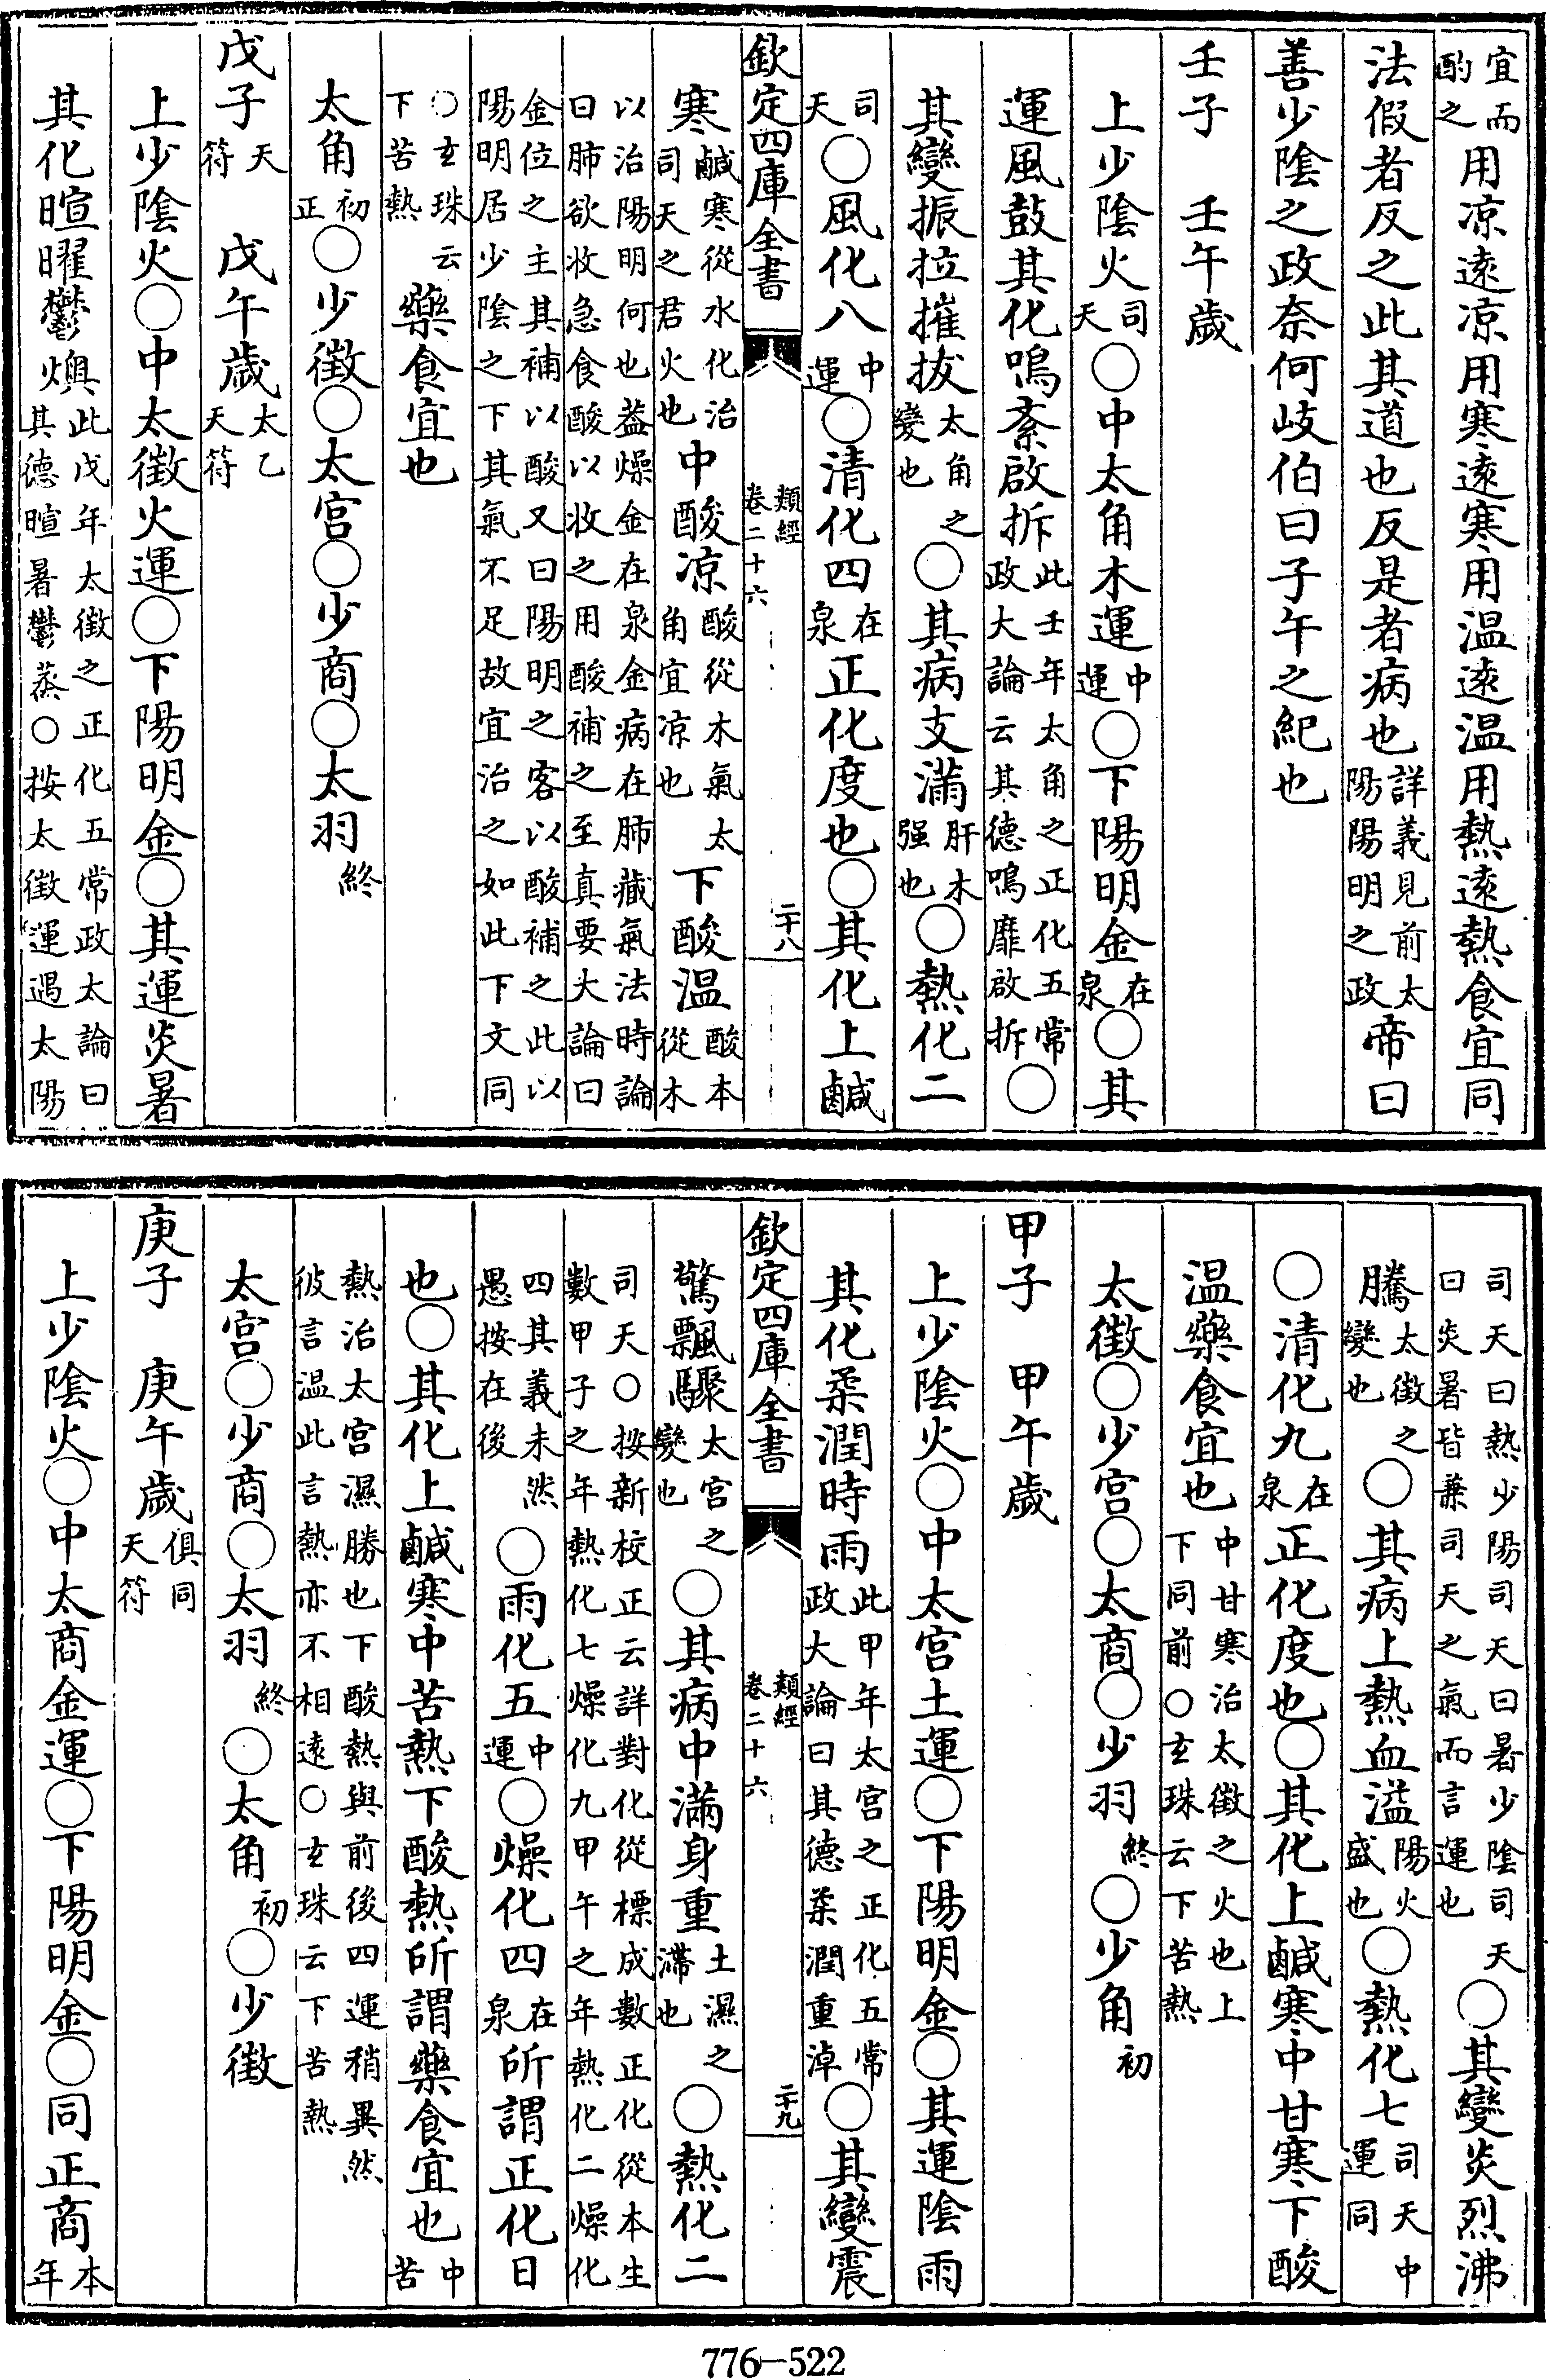 宜而酌之用凉逺凉用寒逺寒用温逺温用熱逺熱食宜同
法假者反之此其道也反是者病也詳義見前太陽陽明之政帝曰
善少隂之政奈何岐伯曰子午之紀也
壬子　壬午歲
上少隂火司天〇中太角木運中運〇下陽明金在泉〇其
運風鼓其化嗚紊啟拆此壬年太角之正化五常政大論云其德嗚靡啟拆〇
其變振拉摧拔太角之變也〇其病支滿肝木强也〇熱化二
司天〇風化八中運〇清化四在泉正化度也〇其化上鹹
欽定四庫全書　類經卷二十六　二十八
寒鹹寒從水化治司天之君火也中酸凉酸從木氣太角宜凉也下酸温酸本從木
以治陽明何也葢燥金在泉金病在肺藏氣法時論曰肺欲收急食酸以收之用酸補之至真要大論曰
金位之主其補以酸又曰陽明之客以酸補之此以陽明居少隂之下其氣不足故宜治之如此下文同
〇玄珠云下苦熱藥食宜也
太角初正〇少徴〇太宫〇少商〇太羽終
戊子天符　戊午歲太乙天符
上少隂火〇中太徴火運〇下陽明金〇其運炎暑
其化暄曜鬱燠此戊年太徴之正化五常政太論曰其德暄暑鬱蒸〇按太徴運遇太陽
司天曰熱少陽司天曰暑少隂司天曰炎暑皆兼司天之氣而言運也〇其變炎烈沸
騰太徴之變也〇其病上熱血溢陽火盛也〇熱化七司天中運同
〇清化九在泉正化度也〇其化上鹹寒中甘寒下酸
温藥食宜也中甘寒治太徴之火也上下同前〇玄珠云下苦熱
太徴〇少宫〇太商〇少羽終〇少角初
甲子　甲午歲
上少隂火〇中太宫土運〇下陽明金〇其運隂雨
其化柔潤時雨此甲年太宫之正化五常政大論曰其德柔潤重淖〇其變震
欽定四庫全書　類經卷二十六　二十九
驚飄驟太宫之變也〇其病中滿身重土濕之滯也〇熱化二
司天〇按新校正云詳對化從標成數正化從本生數甲子之年熱化七燥化九甲午之年熱化二燥化
四其義未然愚按在後〇雨化五中運〇燥化四在泉所謂正化日
也〇其化上鹹寒中苦熱下酸熱所謂藥食宜也中苦
熱治太宫濕勝也下酸熱與前後四運稍異然彼言温此言熱亦不相逺〇玄珠云下苦熱
太宫〇少商〇太羽終〇太角初〇少徴
庚子　庚午歲俱同天符
上少隂火〇中太商金運〇下陽明金〇同正商本年
776—522